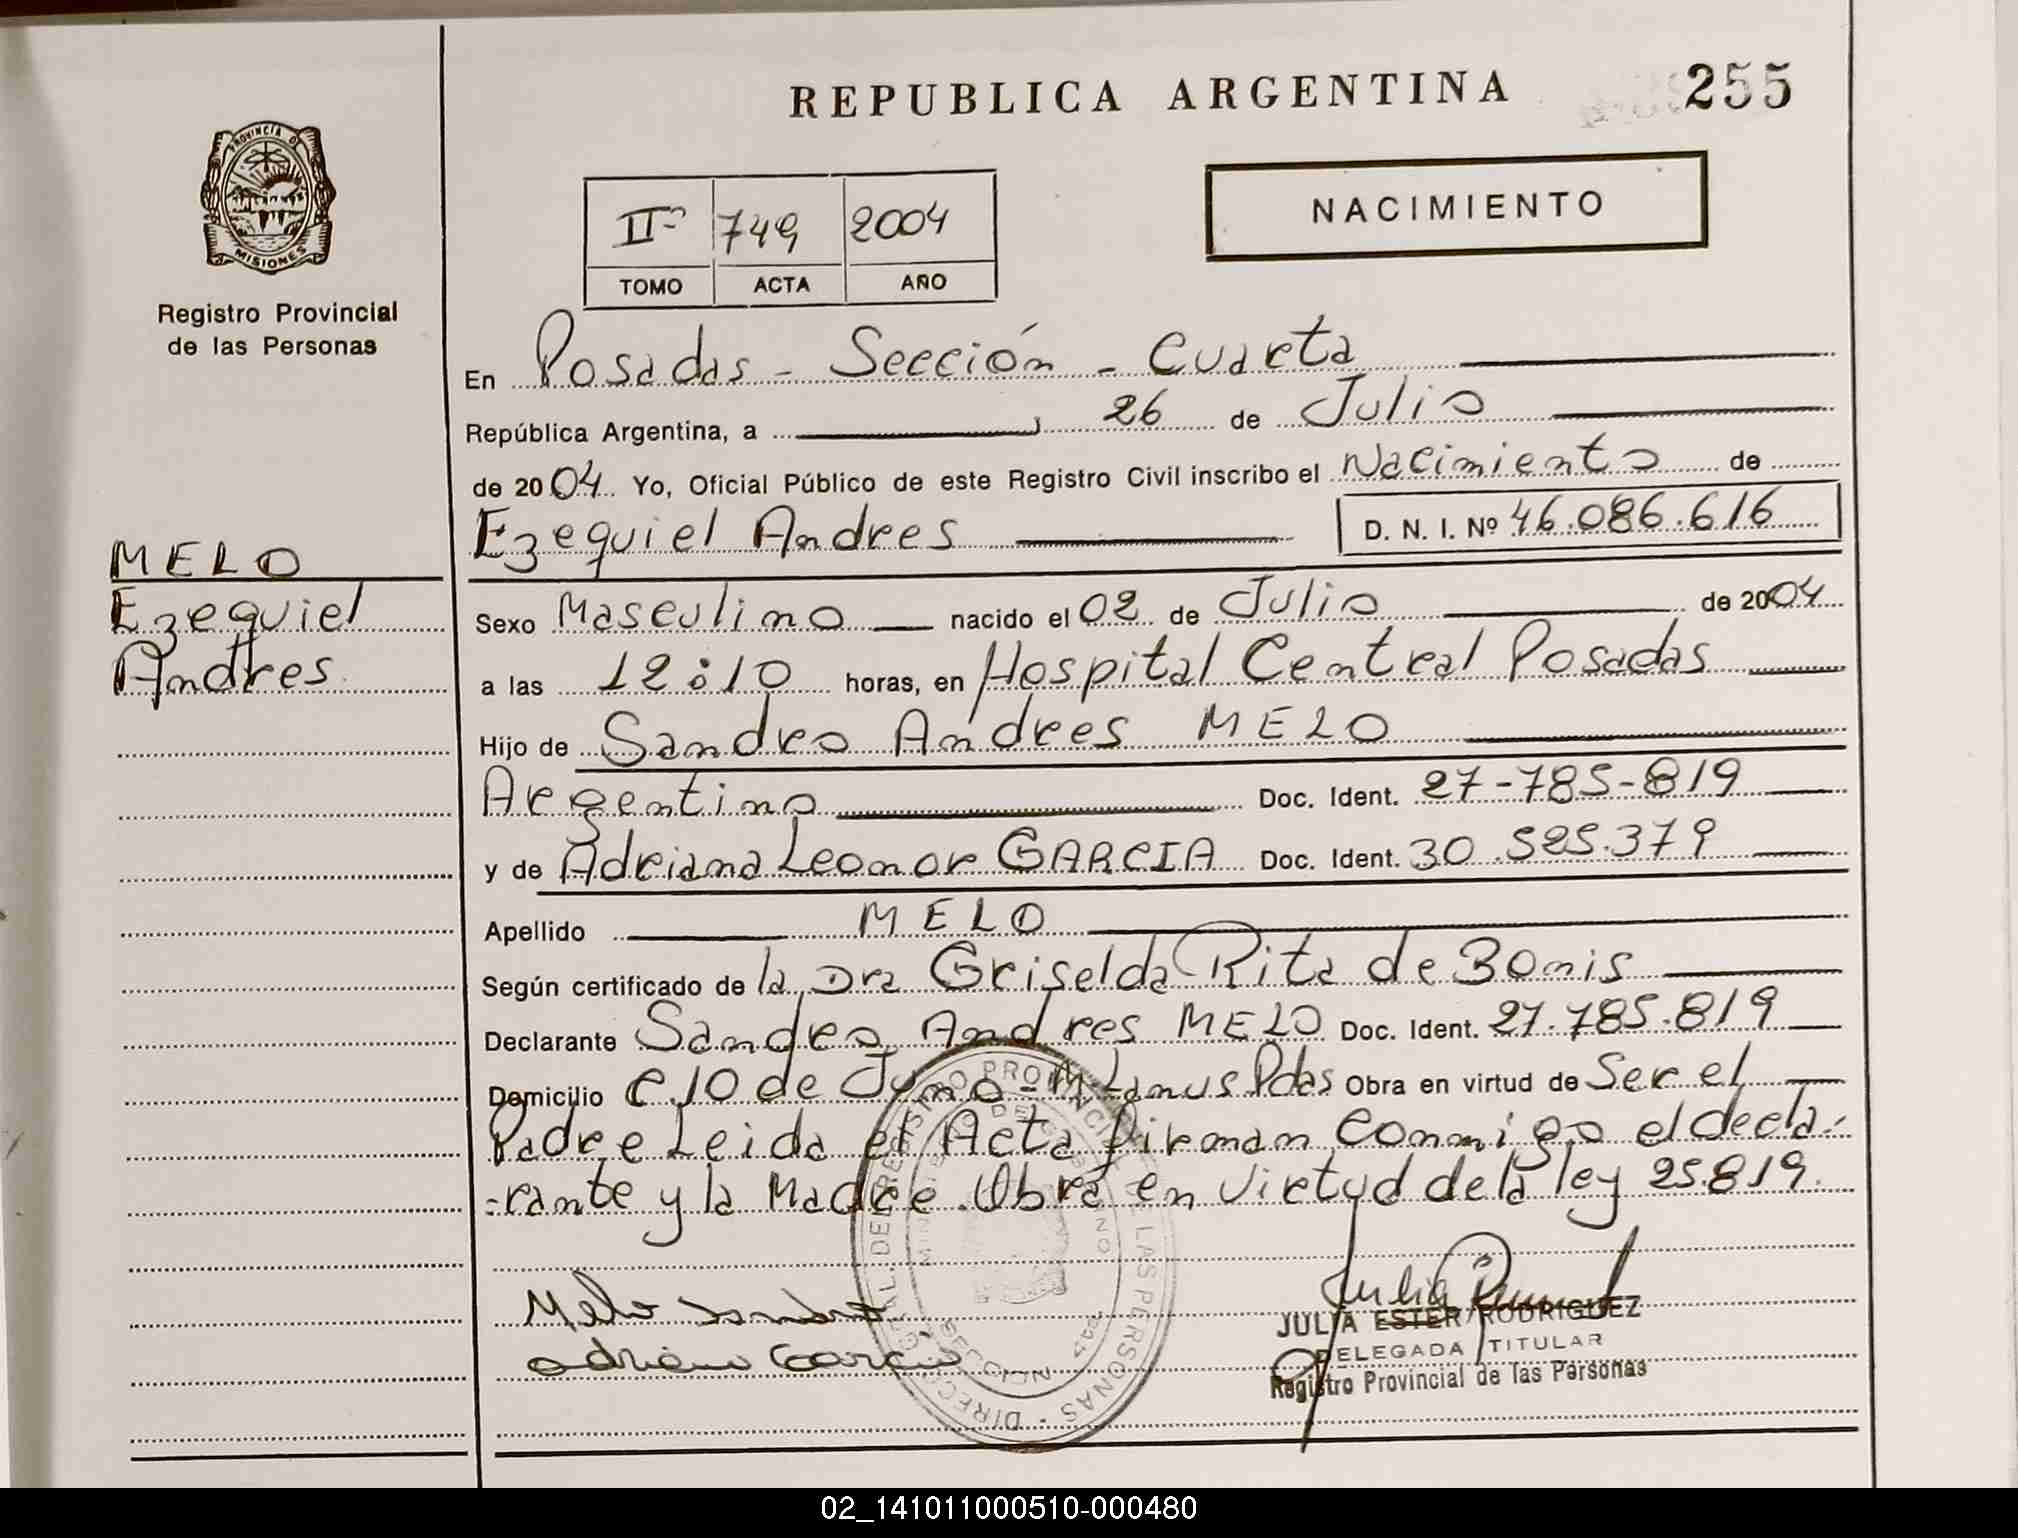 REPUBLICA ARGENTINA
255
PROVINCIA DE
MISIONES
Registro Provincial
de las Personas
IIº 749 2004
TOMO ACTA AÑO
NACIMIENTO
En Posadas - Sección - Cuarta
República Argentina, a 26 de Julio
de 2004. Yo, Oficial Público de este Registro Civil inscribo el Nacimiento de
Ezequiel Andres D. N. I. Nº 46.086.616
MELO
Ezequiel
Andres
Sexo Masculino nacido el 02 de Julio de 2004
a las 12:10 horas, en Hospital Central Posadas
Hijo de Sandro Andres MELO
Argentino Doc. Ident. 27-785-819
y de Adriana Leonor GARCIA Doc. Ident. 30.525.379
Apellido MELO
Según certificado de la Dra Griselda Rita de Bonis
Declarante Sandro Andres MELO Doc. Ident. 27.785.819
Domicilio C.10 de Juno - M. Lanus Pdas Obra en virtud de Ser el
Padre Leida el Acta firman conmigo el decla-
-rante y la Madre. Obra en virtud de la ley 25.819.
Melo Sandro
Adriana Garcia
JULIA ESTER RODRIGUEZ
DELEGADA TITULAR
Registro Provincial de las Personas
02_141011000510-000480